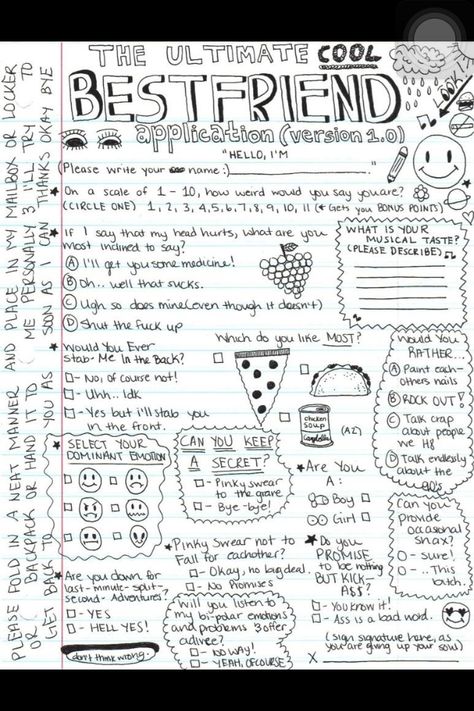 THE ULTIMATE COOL
BESTFRIEND
application (version 1.0)
"HELLO, I'M
(Please write your name:) ."
On a scale of 1 - 10, how weird would you say you are?
(CIRCLE ONE) 1, 2, 3, 4, 5, 6, 7, 8, 9, 10, 11 (* Gets you BONUS POINTS)
If I say that my head hurts, what are you
most inclined to say?
A I'll get you some medicine!
B Oh.. well that sucks.
C Ugh so does mine (even though it doesn't)
D Shut the fuck up
WHAT IS YOUR
MUSICAL TASTE?
(PLEASE DESCRIBE)
Would You Ever
Stab-Me In the Back?
- No, of course not!
- Uhh.. Idk
- Yes but i'll stab you
in the front.
Which do you like MOST?
chicken
soup
(AZ)
Would You
RATHER...
A Paint each-
others nails
B ROCK OUT!
C Talk crap
about people
we H8
D Talk endlessly
about the
90's
SELECT YOUR
DOMINANT EMOTION
CAN YOU KEEP
A SECRET?
- Pinky swear
to the grave
- Bye-bye!
Are You
A:
Boy
Girl
Can you
provide
occasional
snax?
- sure!
- ..This
bitch.
Pinky Swear not to
Fall for eachother?
- Okay, no big deal.
- No Promises
Do you
PROMISE
to be nothing
BUT KICK-
A$$?
- You know it!
- Ass is a bad word.
Are you down for
last-minute-split-
second-Adventures?
- YES
- HELL YES!
don't think wrong.
Will you listen to
my bi-polar emotions
and problems & offer
advice?
- NO WAY!
- YEAH, OFCOURSE
(sign signature here, as
you are giving up your soul)
X
PLEASE FOLD IN A NEAT MANNER AND PLACE IN MY MAILBOX OR LOCKER
OR BACKPACK OR HAND IT TO ME PERSONALLY & I'LL TRY TO
GET BACK TO YOU AS SOON AS I CAN THANKS OKAY BYE